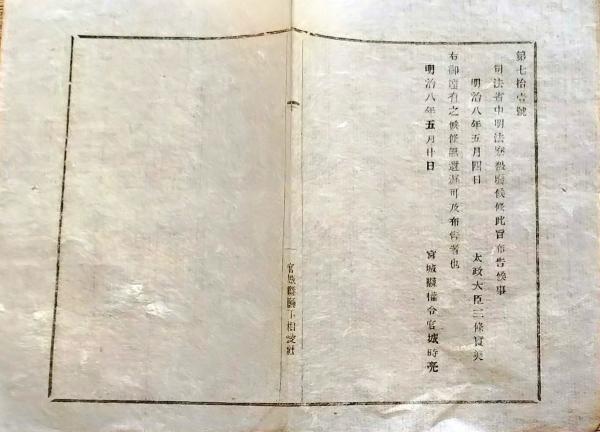 第七拾壹號
司法省中明法寮被廢候條此旨布告候事
明治八年五月四日
太政大臣三條實美
右御達有之候條無遺漏可及布告者也
明治八年五月廿日
宮城縣權令宮城時亮
宮城縣廳下相愛社